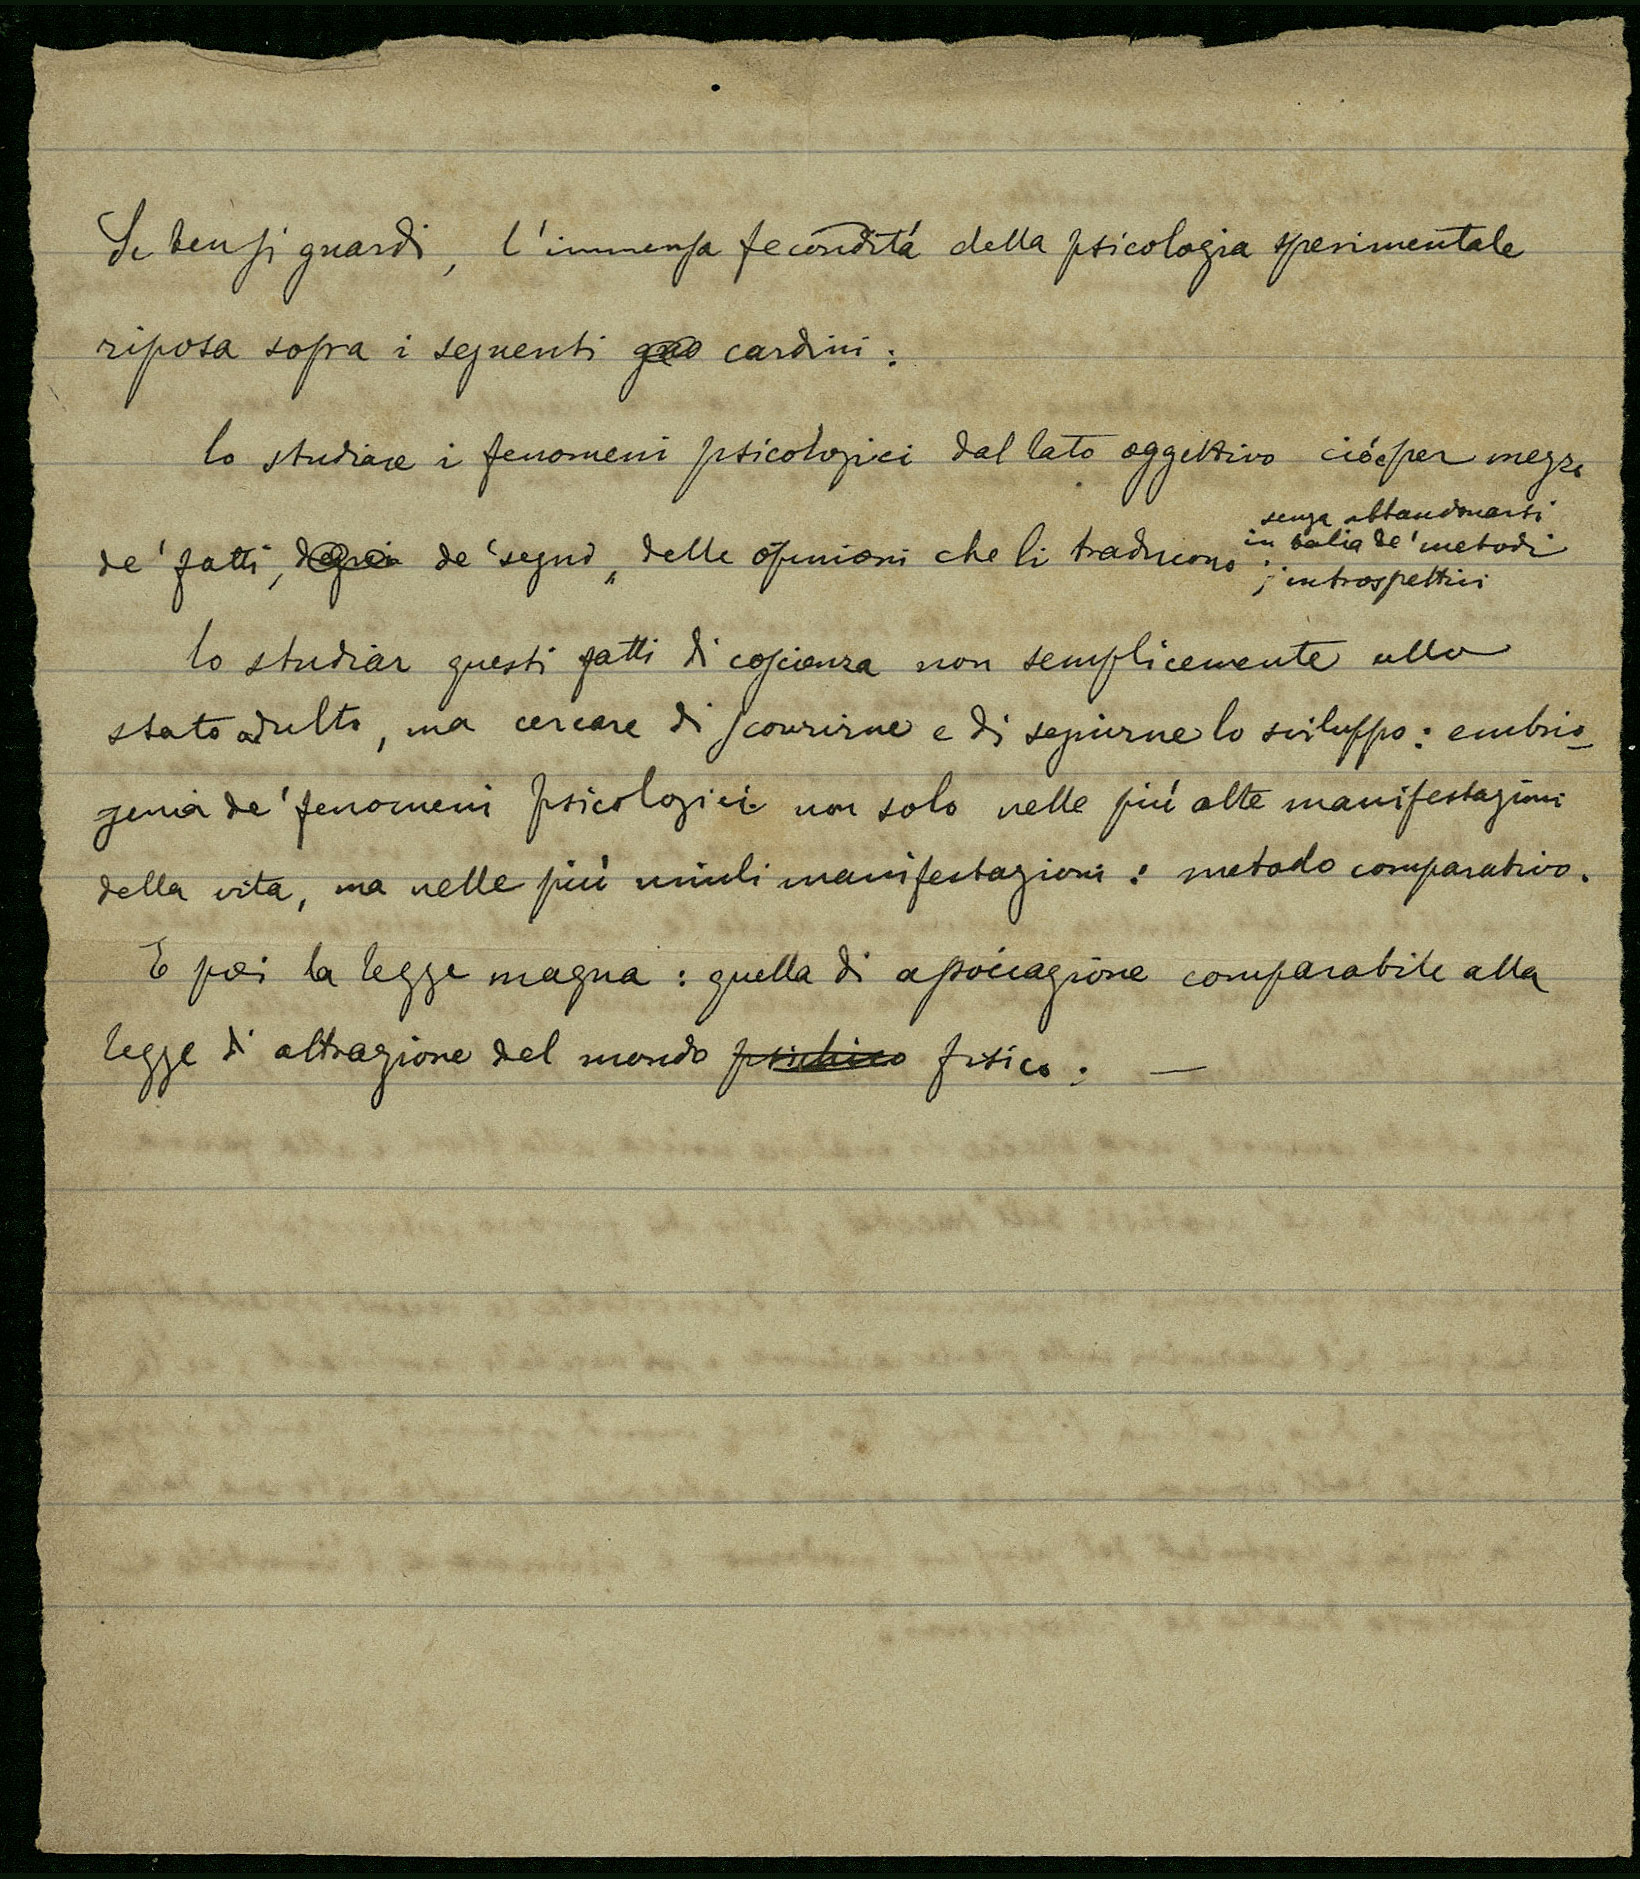 Se ben si guardi, l'immensa fecondità della psicologia sperimentale
riposa sopra i seguenti cardini:
lo studiare i fenomeni psicologici dal lato oggettivo cióè per mezzo
de' fatti, de' segni, delle opinioni che li traducono senza abbandonarsi
in balia de' metodi
introspettivi;
lo studiar questi fatti di coscienza non semplicemente allo
stato adulto, ma cercare di scovrirne e di seguirne lo sviluppo: embrio-
genia de' fenomeni psicologici non solo nelle più alte manifestazioni
della vita, ma nelle più umili manifestazioni: metodo comparativo.
E poi la legge magna: quella di associazione comparabile alla
legge di attrazione del mondo psichico fisico. —